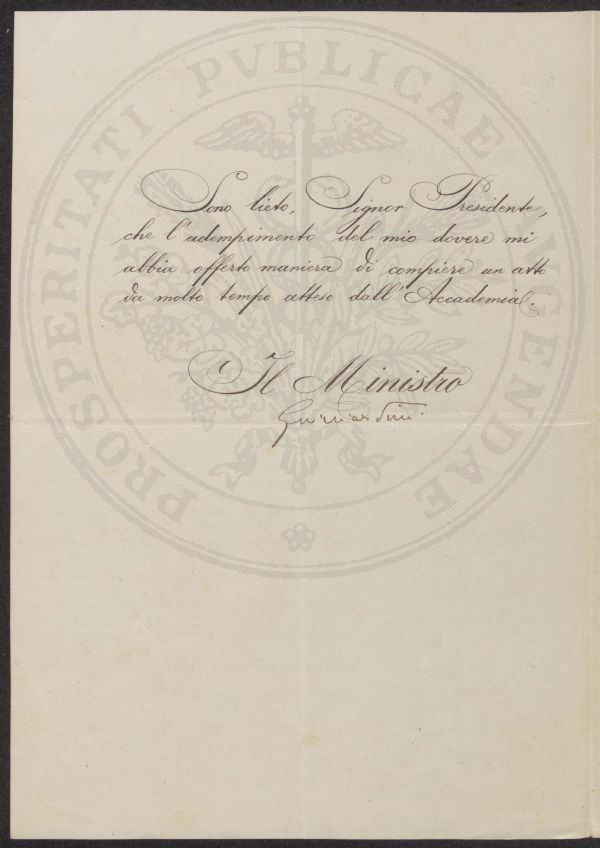 PROSPERITATI PVBLICAE AVGENDAE
Sono lieto, Signor Presidente,
che l'adempimento del mio dovere mi
abbia offerto maniera di compiere un atto
da molto tempo atteso dall'Accademia.
Il Ministro
Guicciardini